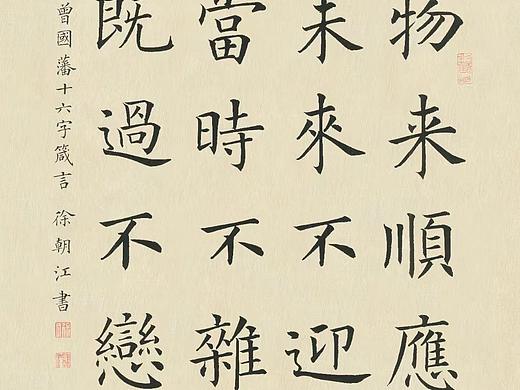 物来順應
未來不迎
當時不雜
既過不戀
曾國藩十六字箴言 徐朝江書